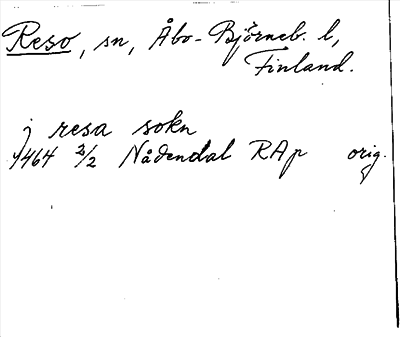 Reso, sn, Åbo-Björneb. l,
Finland.
j resa sokn
1464 2/2 Nådendal RAp orig.